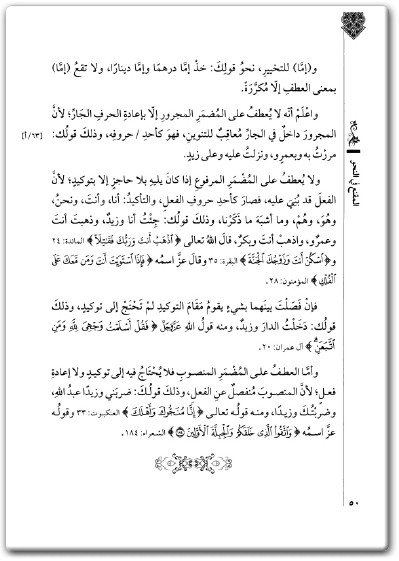 و(إمَّا) للتخييرِ، نحوُ قولِكَ: خذْ إمَّا درهمًا وإمَّا دينارًا، ولا تقعُ (إمَّا)
بمعنى العطفِ إلّا مُكرَّرَةً.
واعْلَمْ أنّه لا يُعطفُ على المُضمَرِ المجرورِ إلّا بإعادةِ الحرفِ الجَارِّ؛ لأنَّ
المجرورَ داخلٌ في الجارِّ معاقِبٌ للتنوينِ، فهوَ كأحدِ / حروفِه، وذلكَ قولُك: [١٣/أ]
مررْتُ به وبعمرٍو، ونزلتُ عليه وعلى زيدٍ.
ولا يُعطفُ على المُضْمَرِ المرفوعِ إذا كانَ يليهِ بلا حاجزٍ إلا بتوكيدٍ؛ لأنَّ
الفعلَ قد بُنِيَ عليه، فصارَ كأحدِ حروفِ الفعلِ، والتأكيدُ: أنا، وأنتَ، ونحنُ،
وهُوَ، وهُمْ، وما أشبَهَ ما ذكَرْنا، وذلك قولُكَ: جِئْتُ أنا وزيدٌ، وذهبتَ أنتَ
وعمرٌو، واذهبْ أنتَ وبكرٌ، قالَ اللهُ تعالى ﴿ٱذۡهَبۡ أَنتَ وَرَبُّكَ فَقَٰتِلَآ﴾ المائدة: ٢٤
و﴿ٱسۡكُنۡ أَنتَ وَزَوۡجُكَ ٱلۡجَنَّةَ﴾ البقرة: ٣٥ وقالَ عزَّ اسمُه ﴿فَإِذَا ٱسۡتَوَيۡتَ أَنتَ وَمَن مَّعَكَ عَلَى
ٱلۡفُلۡكِ﴾ المؤمنون: ٢٨.
فإنْ فَصَلْتَ بينَهما بشيءٍ يقومُ مَقَامَ التوكيدِ لمْ تَحْتَجْ إلى توكيدٍ، وذلكَ
قولُك: دَخَلْتُ الدارَ وزيدٌ، ومنه قولُ اللهِ ﷿ ﴿فَقُلۡ أَسۡلَمۡتُ وَجۡهِيَ لِلَّهِ وَمَنِ
ٱتَّبَعَنِۗ﴾ آل عمران: ٢٠.
وأمَّا العطفُ على المُضْمَرِ المنصوبِ فلا يُحْتَاجُ فيه إلى توكيدٍ ولا إعادةِ
فعلٍ؛ لأنَّ المنصوبَ مُنفصلٌ عنِ الفعلِ، وذلكَ قولُكَ: ضربَني وزيدًا عبدُ اللهِ،
وضربْتُكَ وزيدًا، ومنه قولُه تعالى ﴿إِنَّا مُنَجُّوكَ وَأَهۡلَكَ﴾ العنكبوت: ٣٣ وقولُه
عزَّ اسمُه ﴿وَٱتَّقُواْ ٱلَّذِي خَلَقَكُمۡ وَٱلۡجِبِلَّةَ ٱلۡأَوَّلِينَ ١٨٤﴾ الشعراء: ١٨٤.
المقنع في النحو
٥٠